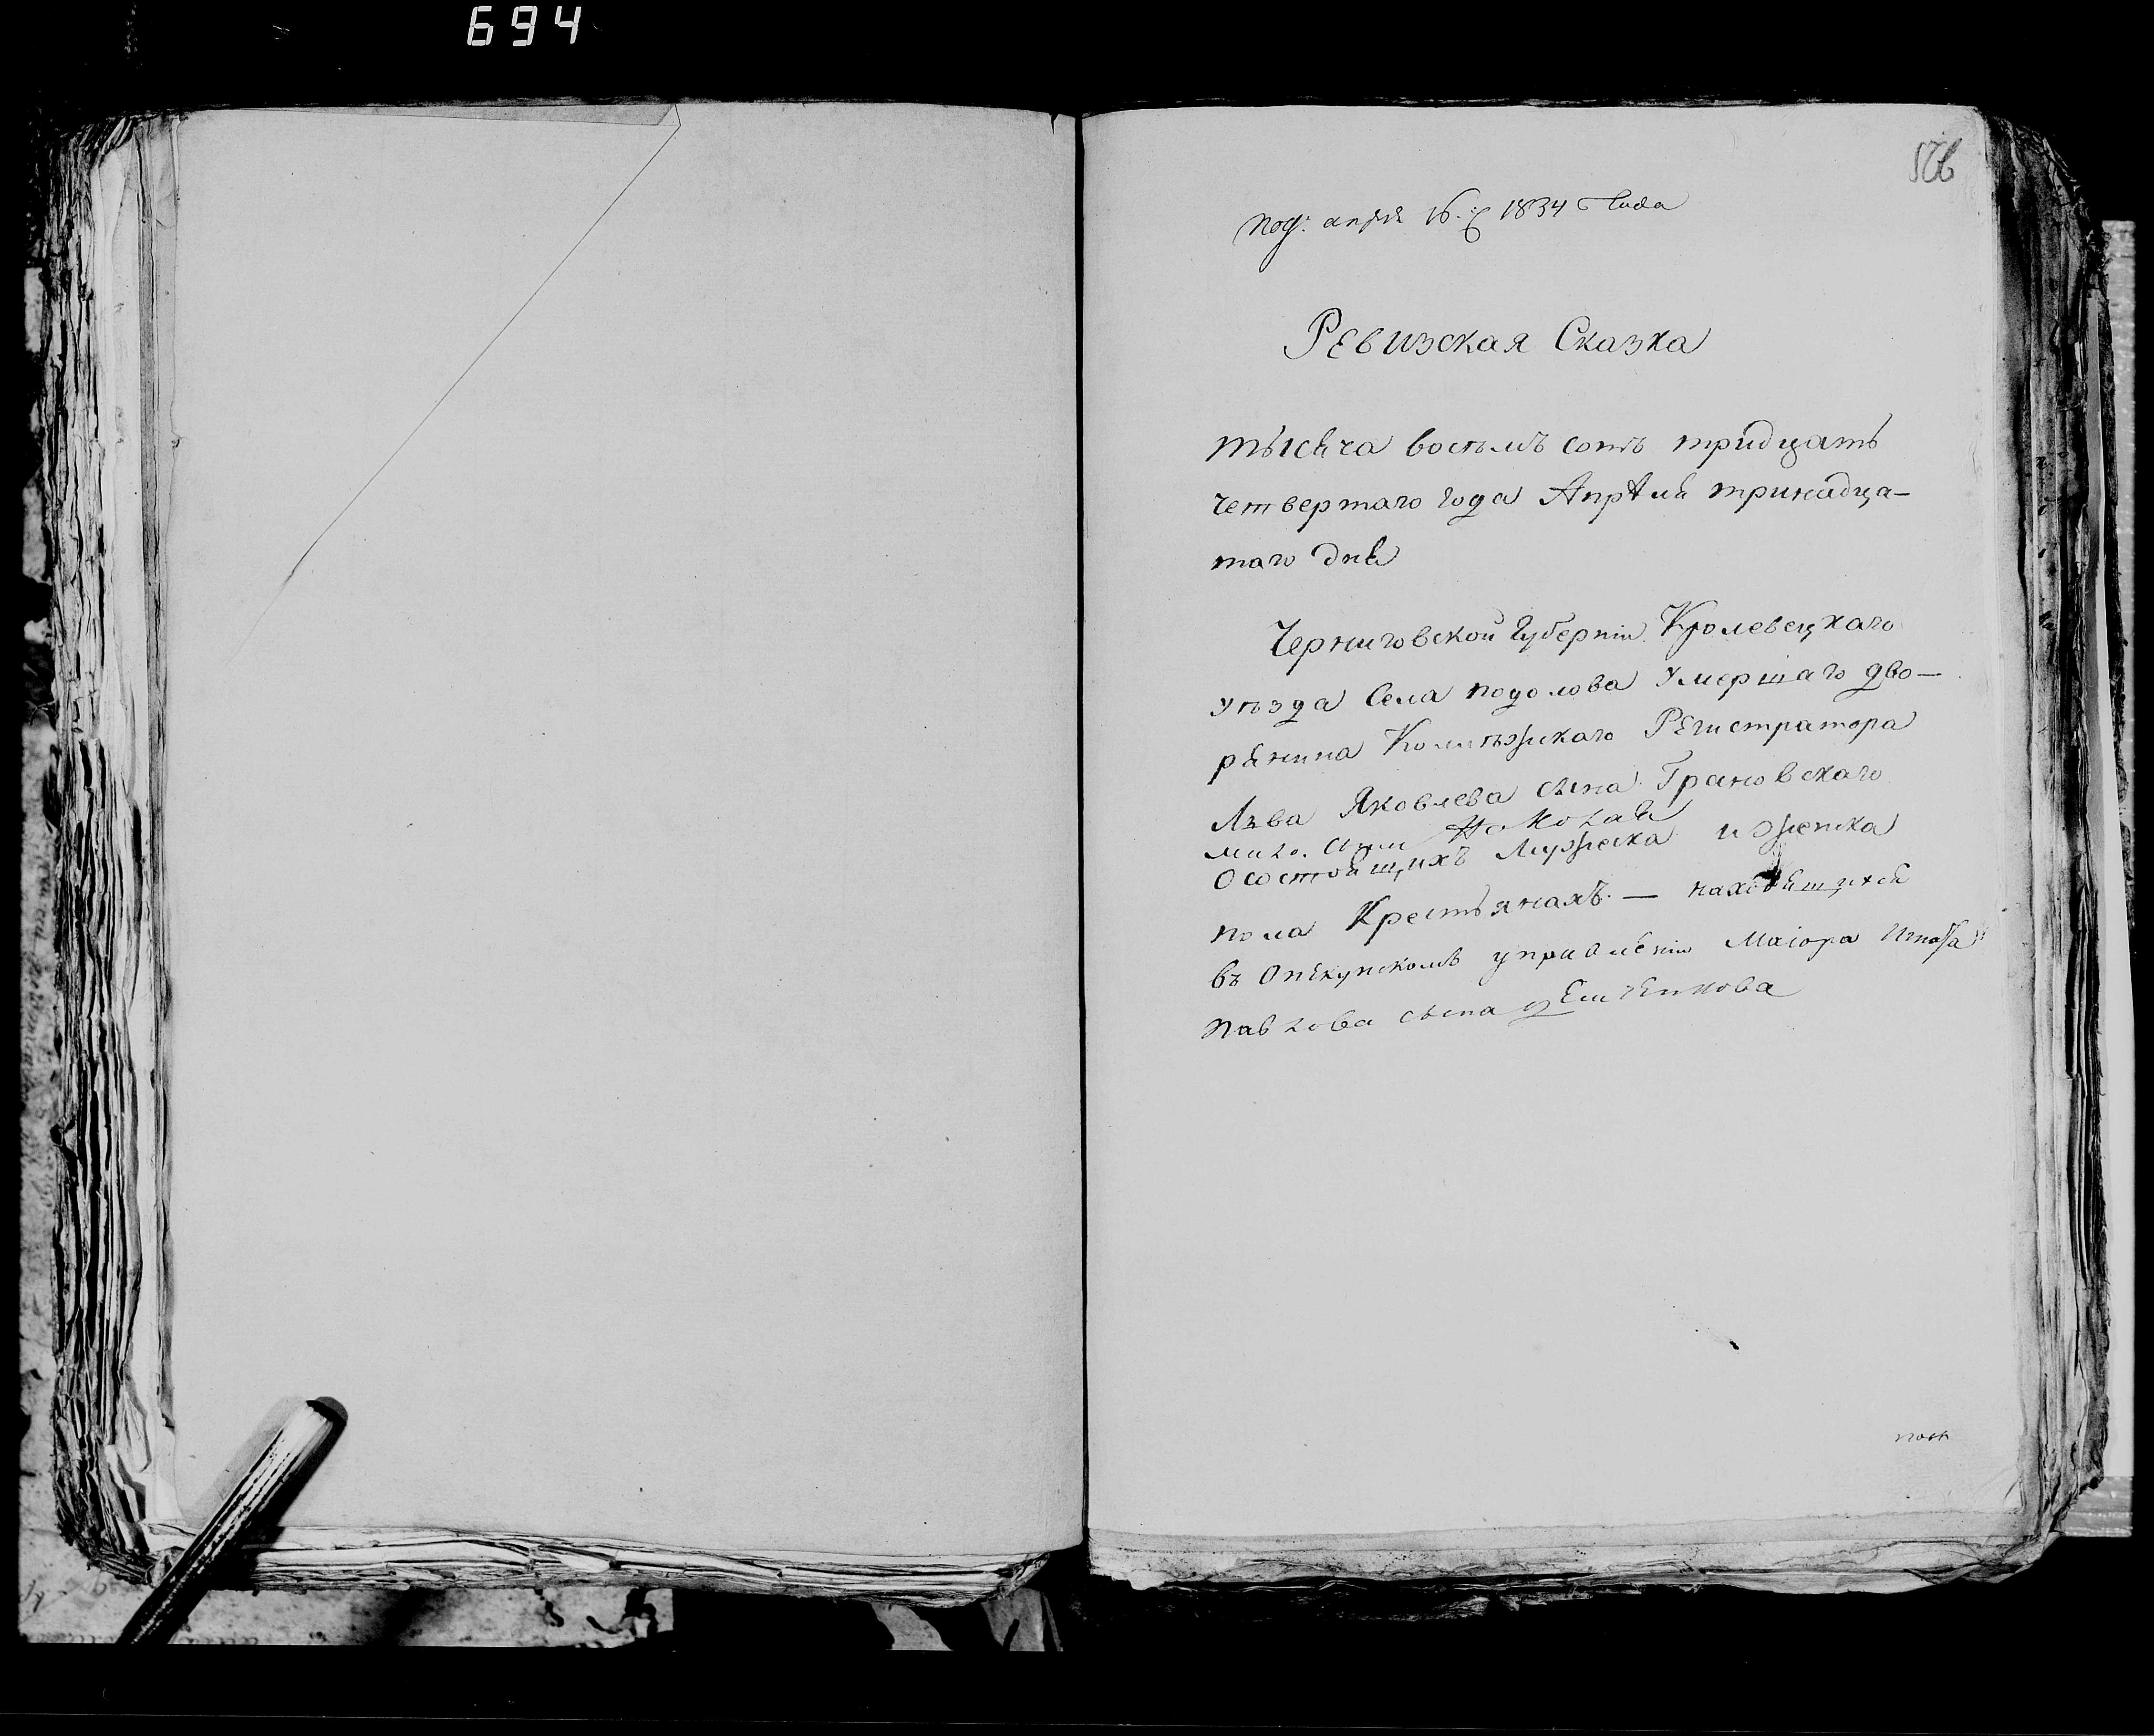 694
506
Под: апреля 16.го 1834 Года
Ревизская Сказка
тысяча восемъ сотъ тридцать
четвертаго года Апреля тринадца-
таго дня
Черниговской Губерніи Кролевецкаго
уезда Села подолова Умершаго дво-
рянина Колѣжскаго Регистратора
Лва Яковлева сына Грановскаго
Осостоящихъ Мужеска и женска
пола Крестьянахъ — находящихся
въ Опекунскомъ управленіи Маіора
Павлова сына